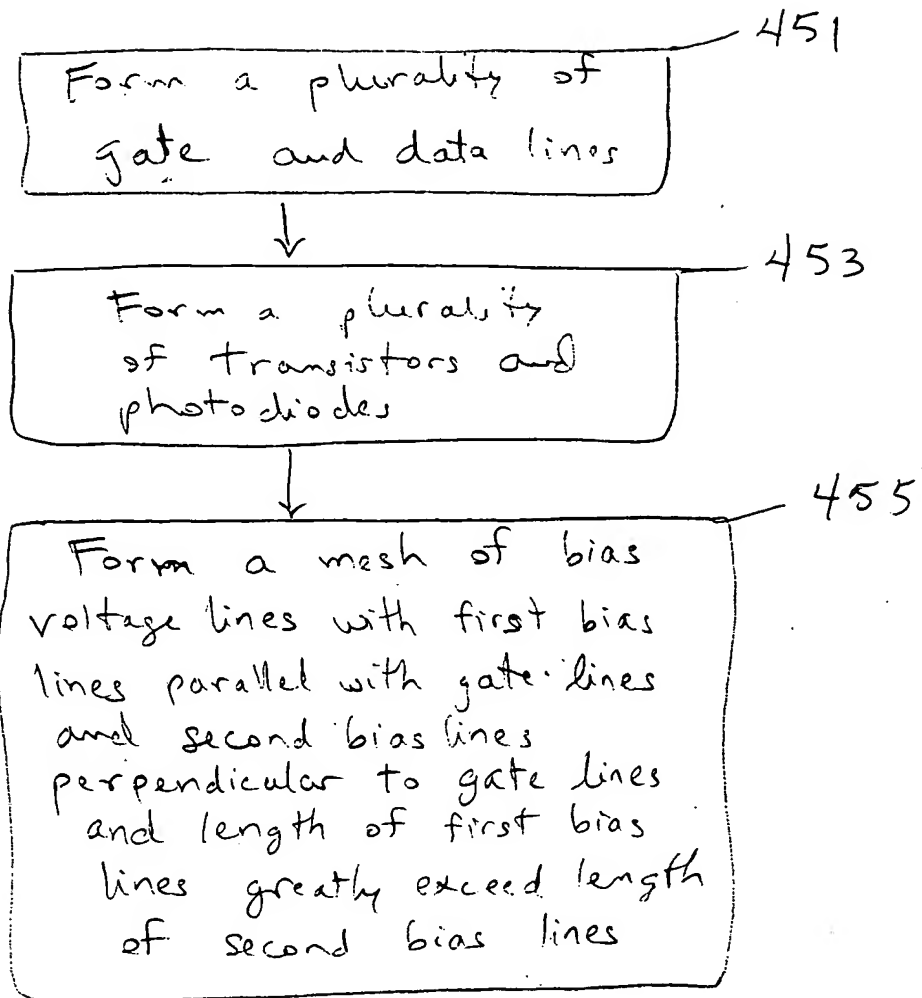 451
Form a plurality of
gate and data lines
453
Form a plurality
of transistors and
photodiodes
455
Form a mesh of bias
voltage lines with first bias
lines parallel with gate lines
and second bias lines
perpendicular to gate lines
and length of first bias
lines greatly exceed length
of second bias lines